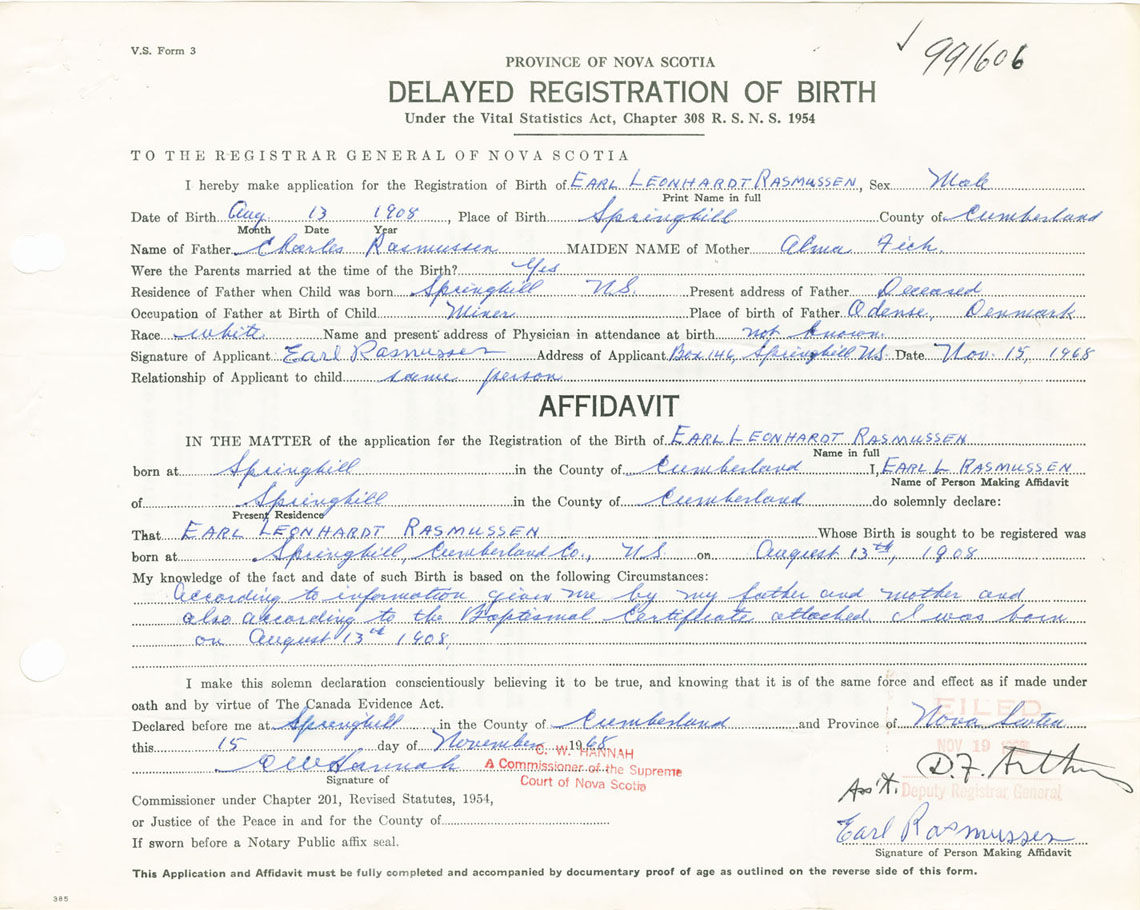 V.S. Form 3
991606
PROVINCE OF NOVA SCOTIA
DELAYED REGISTRATION OF BIRTH
Under the Vital Statistics Act, Chapter 308 R. S. N. S. 1954
TO THE REGISTRAR GENERAL OF NOVA SCOTIA
I hereby make application for the Registration of Birth of EARL LEONHARDT RASMUSSEN, Sex Male
Print Name in full
Date of Birth Aug. 13 1908, Place of Birth Springhill County of Cumberland
Month Date Year
Name of Father Charles Rasmussen MAIDEN NAME of Mother Alma Fich.
Were the Parents married at the time of the Birth? Yes
Residence of Father when Child was born Springhill N.S. Present address of Father Deceased
Occupation of Father at Birth of Child Miner Place of birth of Father Odense, Denmark
Race white Name and present address of Physician in attendance at birth not known.
Signature of Applicant Earl Rasmussen Address of Applicant Box 146, Springhill N.S. Date Nov. 15, 1968
Relationship of Applicant to child same person
AFFIDAVIT
IN THE MATTER of the application for the Registration of the Birth of EARL LEONHARDT RASMUSSEN
Name in full
born at Springhill in the County of Cumberland I, EARL L RASMUSSEN
Name of Person Making Affidavit
of Springhill in the County of Cumberland do solemnly declare:
Present Residence
That EARL LEONHARDT RASMUSSEN Whose Birth is sought to be registered was
born at Springhill, Cumberland Co., N.S. on August 13th, 1908
My knowledge of the fact and date of such Birth is based on the following Circumstances:
According to information given me by my father and mother and
also according to the Baptismal Certificate attached I was born
on August 13th 1908,
I make this solemn declaration conscientiously believing it to be true, and knowing that it is of the same force and effect as if made under
oath and by virtue of The Canada Evidence Act.
FILED
Declared before me at Springhill in the County of Cumberland and Province of Nova Scotia
this 15 day of November 1968
NOV 19
C. W. HANNAH
A Commissioner of the Supreme
Court of Nova Scotia
C W Hannah
Signature of
D.F. Arthur
Ass't. Deputy Registrar General
Commissioner under Chapter 201, Revised Statutes, 1954,
or Justice of the Peace in and for the County of
Earl Rasmussen
If sworn before a Notary Public affix seal.
Signature of Person Making Affidavit
This Application and Affidavit must be fully completed and accompanied by documentary proof of age as outlined on the reverse side of this form.
385